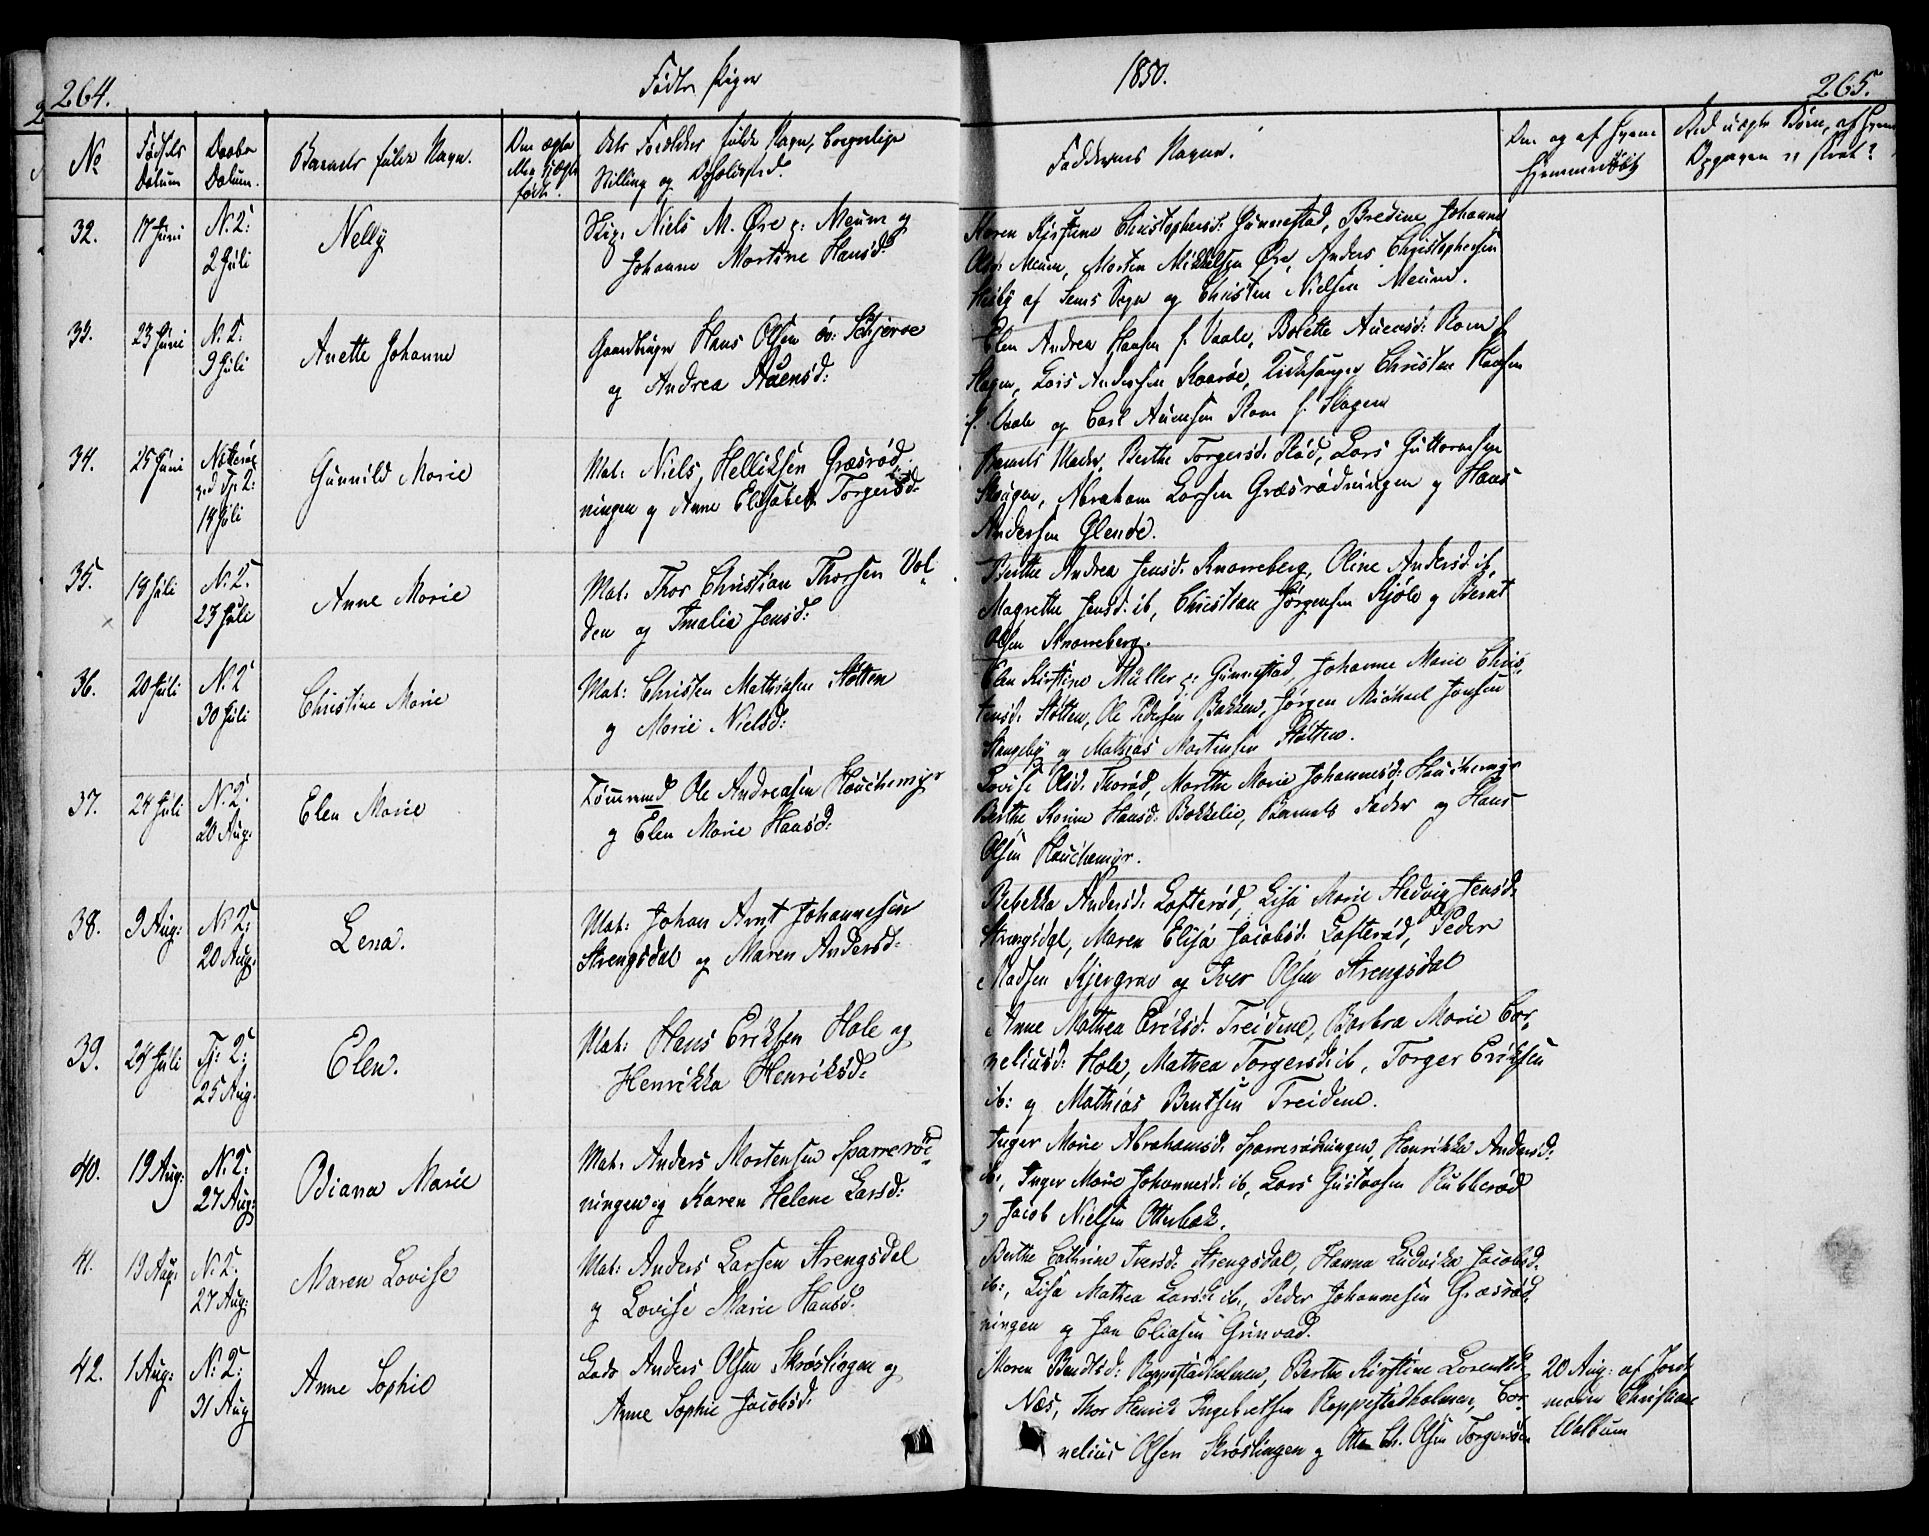 264.
Födte Piger
1850.
265.
No
Födsels Datum
Daabs Datum.
Barnets fulde Navn.
Om ægte eller uægte født.
Dets Forældres fulde Navn, borgerlige
Stilling og Opholdssted.
Faddernes Navne.
Om og af hvem
hjemmedöbt
Ved uægte Börn, af hvem
Opgaven er skeet?
32.
17 Juni
N. 2:
2 Juli
Nelly
Skip. Niels M. Øre p: Meum og
Johanne Martine Hansd:
Maren Kirstine Christophersd: Gunnestad, Bredine Johanne
Olsd: Meum, Morten Mikkelsen Øre, Anders Christophersen
af Sems Sogn og Christen Nielsen Meum.
33.
23 Juni
N. 2:
9 Juli
Anette Johanne
Gaardbruger Hans Olsen öv: Schjeroe
og Andrea Auensd:
Elen Andrea Hansen f. Vaale, Bolette Auensd: Rom f.
Slagen, Lars Andersen Kaaröe, Kirkesanger Christen Hansen
f. Vaale og Carl Auensen Rom f. Slagen
34.
25 Juni
Nötterö
Tj. 2:
14 Juli
Gunnild Marie
Mat: Niels Helliksen Græsröd-
ningen og Anne Elisabeth Torgersd:
Barnets Moder, Berthe Torgersd: Röd, Lars Guttormsen
Skougen, Abraham Larsen Græsrödningen og Hans
Andersen Glende.
35.
18 Juli
N. 2.
23 Juli
Anne Marie
Mat: Thor Christian Thorsen Vol-
den og Amalia Jensd:
Berthe Andrea Jensd. Knarreberg, Oline Andersd ib,
Magrethe Jensd: ib, Christian Jörgensen Kjöle og Bernt
Olsen Knarreberg.
36.
20 Juli
N. 2
30 Juli
Christine Marie
Mat: Christen Mathiesen Stötten
og Marie Nielsd:
Elen Kirstine Müller p: Gunnestad, Johanne Marie Chris-
tensd: Stötten, Ole Pedersen Bakken, Jörgen Michael Jensen
Stangeby og Mathias Martinsen Stötten.
37.
24 Juli
N. 2.
20 Aug:
Elen Marie
Tömmermd Ole Andreasen Hauchemyr
og Elen Marie Hansd:
Lovise Olsd: Thoröd, Marthe Marie Johannesd: Hauchemyr
Berthe Karine Hansd: Bakkelie, Barnets Fader og Hans
Olsen Hauchemyr.
38.
9 Aug:
N. 2:
20 Aug.
Lena.
Mat: Johan Arnt Johannesen
Strengsdal og Maren Andersd:
Rebekka Andersd: Lofteröd, Lisa Marie Hedvig Jensd:
Strengsdal, Maren Elisa Jacobsd: Lofteröd, Peder
Madsen Kjergrav og Iver Olsen Strengsdal
39.
24 Juli
Tj: 2:
25 Aug.
Elen.
Mat: Hans Eriksen Hole og
Henrikka Henriksd:
Anne Mathea Eriksd: Treidene, Barbra Marie Cor-
neliusd: Hole, Mathea Torgersd: ib, Torger Eriksen
ib: og Mathias Bentsen Treidene.
40.
19 Aug:
N. 2:
27 Aug:
Odiana Marie
Mat: Anders Mortensen Sparreröd-
ningen og Karen Helene Larsd:
Inger Marie Abrahamsd: Sparrerödningen, Henrikka Andersd:
ib:, Inger Marie Johannesd: ib, Lars Gustavsen Rubberöd
og Jacob Nielsen Otterbæk.
41.
19 Aug:
N: 2:
27 Aug:
Maren Lovise
Mat: Anders Larsen Strengsdal
og Lovise Marie Hansd.
Berthe Cathrine Iversd: Strengsdal, Hanna Ludvika Jacobsd.
ib:, Lisa Mathea Larsd: ib:, Peder Johannesen Græsröd-
ningen og Jan Eliasen Grinvad.
42.
1 Aug:
N: 2:
31 Aug
Anne Sophie
Lods Anders Olsen Skröslingen og
Anne Sophie Jacobsd:
Maren Bendtsd: Roppestadholmen, Berthe Kirstine Lorentsd:
Næs, Thor Henrik Ingebretsen Roppestadholmen, Cor-
nelius Olsen Skröslingen og Otto Ch. Olsen Torgersöen
20 Aug: af Jord-
moder Christiane
Walbum